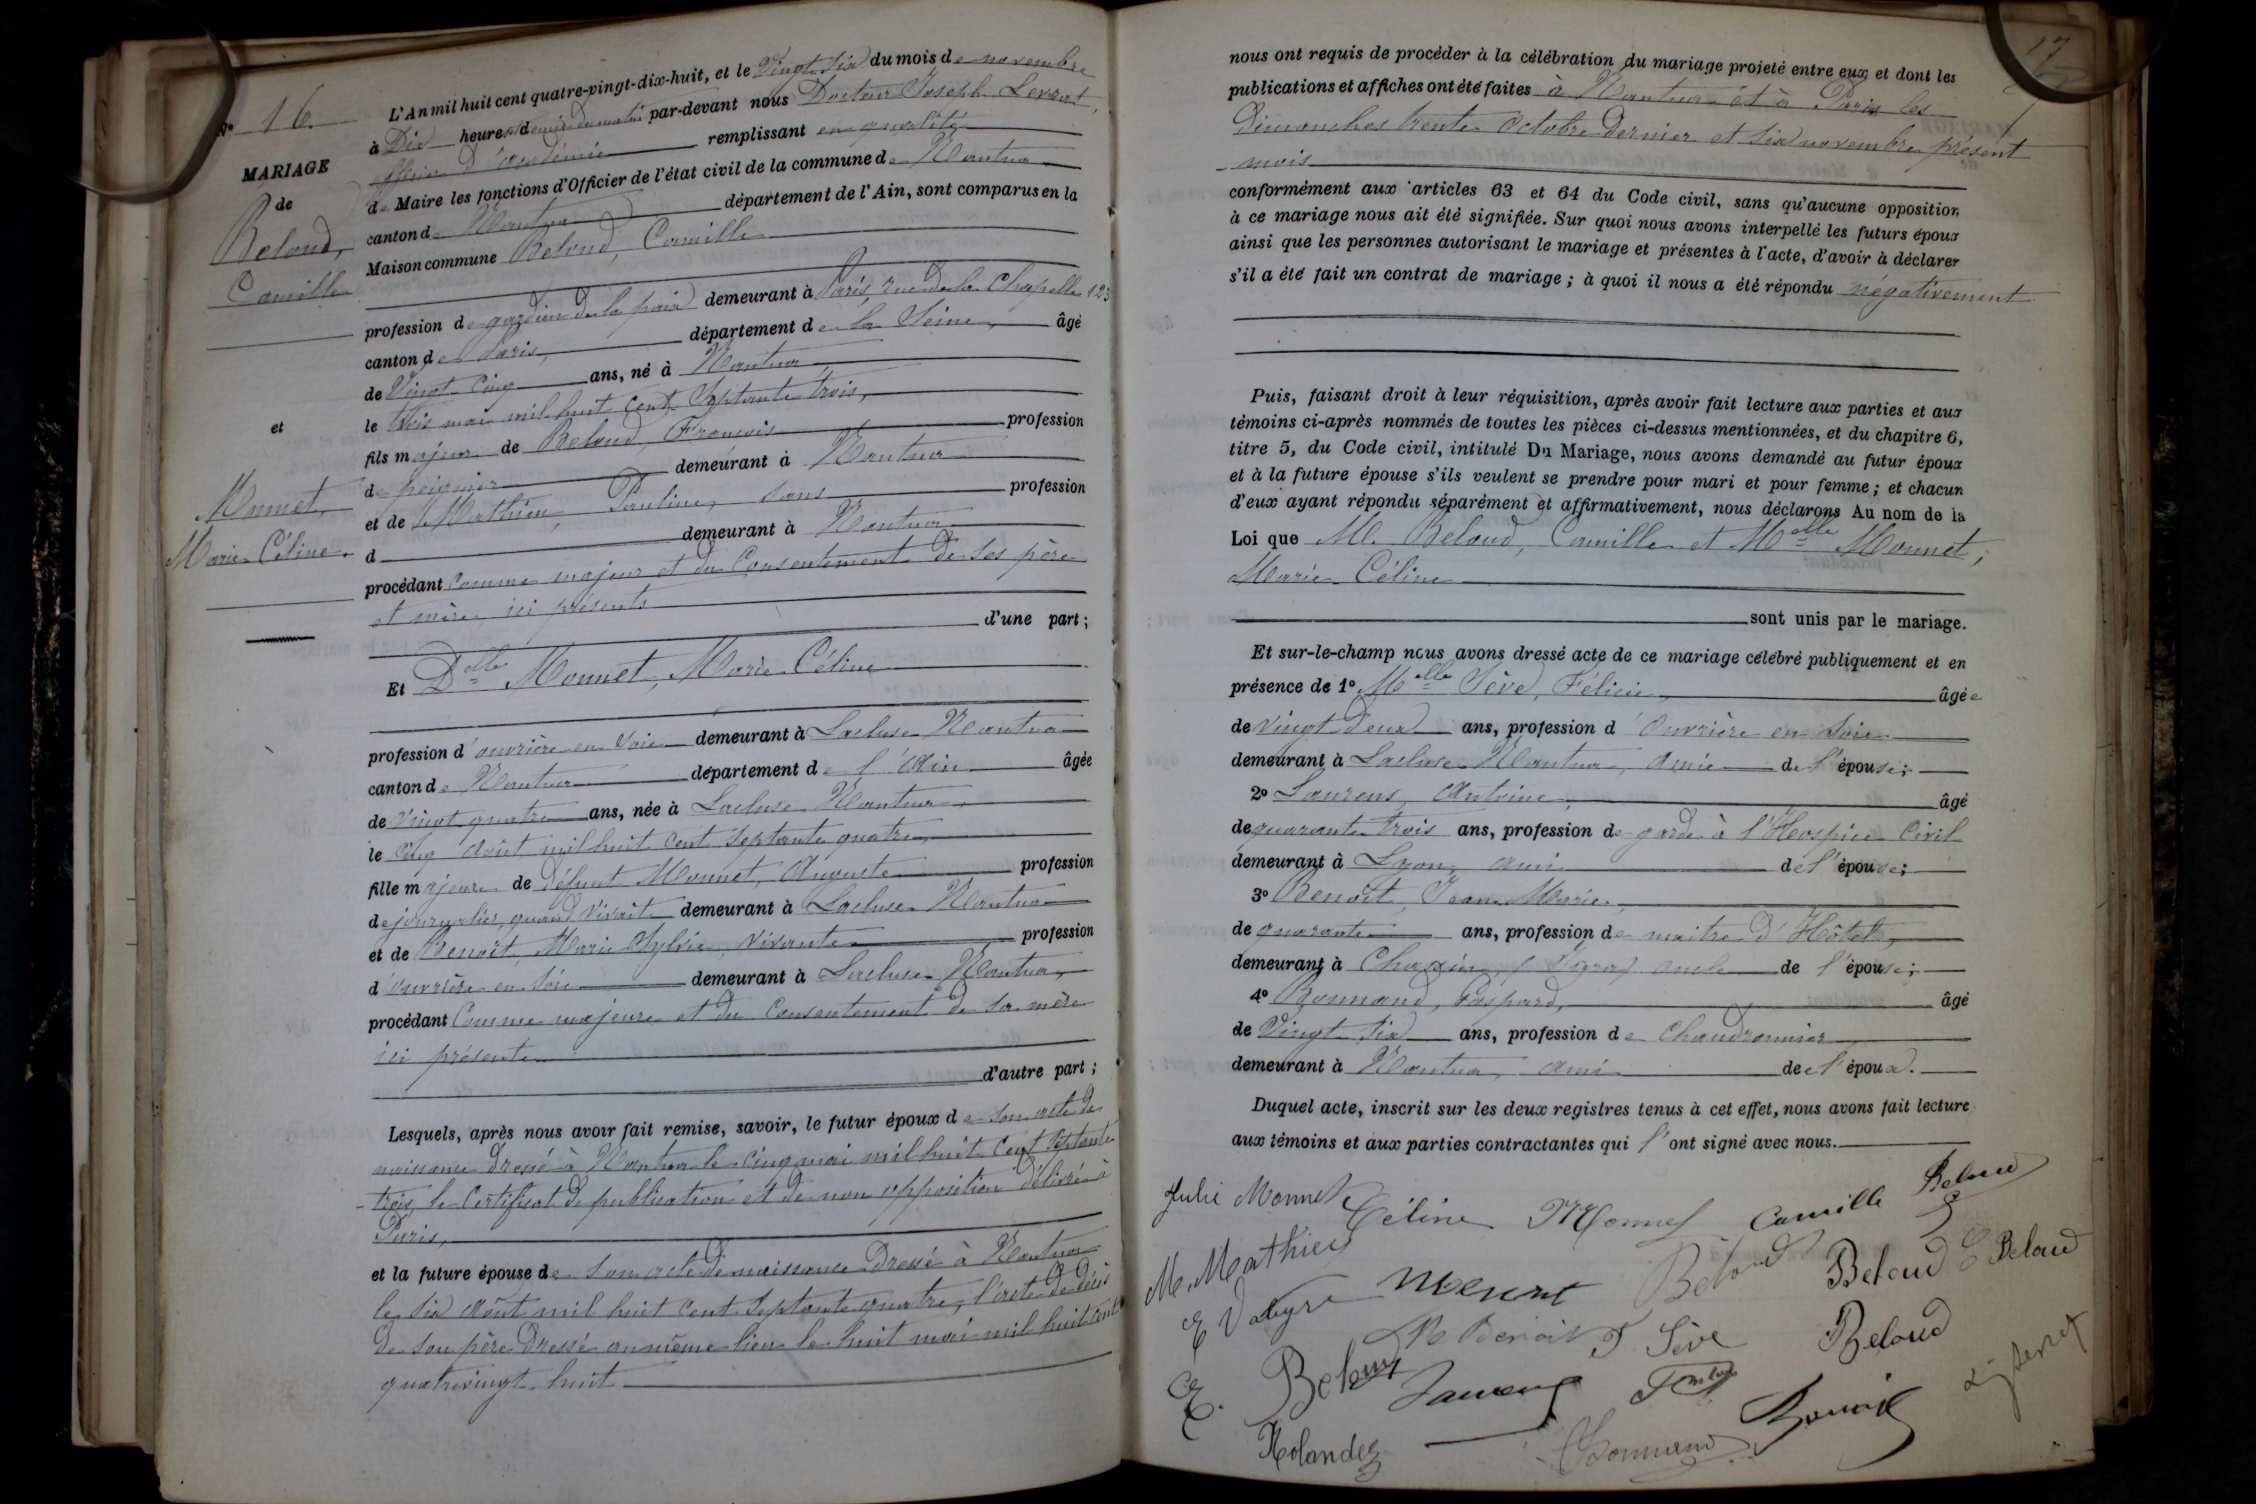 L'An mil huit cent quatre-vingt-dix-huit, et le Vingt Six du mois de novembre
à Dix heures et demie du matin par-devant nous Docteur Joseph Levrat,
officier d'académie remplissant en qualité
de Maire les fonctions d'Officier de l'état civil de la commune de Nantua
canton de Nantua département de l'Ain, sont comparus en la
Maison commune Beloud, Camille
profession de gardien de la paix demeurant à Paris, rue de la Chapelle 123
canton de Paris, département de la Seine, âgé
de Vingt cinq ans, né à Nantua
le trois mai mil huit cent septante trois,
fils majeur de Beloud, François profession
de peignier demeurant à Nantua
et de Mathieu, Pauline, sans profession
d demeurant à Nantua
procédant comme majeur et du consentement de ses père
et mère ici présents
d'une part;
Et Delle Monnet, Marie Céline
profession d'ouvrière en soie demeurant à Lacluse Nantua
canton de Nantua département de l'Ain âgée
de Vingt quatre ans, née à Lacluse Nantua
le cinq août mil huit cent septante quatre,
fille majeure de défunt Monnet, Auguste profession
de journalier, quand vivait demeurant à Lacluse Nantua
et de Benoît, Marie Sylvie, vivante profession
d'ouvrière en soie demeurant à Lacluse Nantua,
procédant Comme majeure et du consentement de sa mère
ici présente
d'autre part;
Lesquels, après nous avoir fait remise, savoir, le futur époux de son acte de
naissance dressé à Nantua le cinq mai mil huit cent septante
trois, le certificat de publication et de non opposition délivré à
Paris,
et la future épouse de son acte de naissance dressé à Nantua
le six août mil huit cent septante quatre, l'acte de décès
de son père dressé au même lieu le huit mai mil huit cent
quatrevingt huit
N° 16
MARIAGE
de
Beloud,
Camille
et
Monnet,
Marie Céline.
17
nous ont requis de procéder à la célébration du mariage projeté entre eux et dont les
publications et affiches ont été faites à Nantua et à Paris les
Dimanches trente Octobre dernier et six novembre présent
mois
conformément aux articles 63 et 64 du Code civil, sans qu'aucune opposition
à ce mariage nous ait été signifiée. Sur quoi nous avons interpellé les futurs époux
ainsi que les personnes autorisant le mariage et présentes à l'acte, d'avoir à déclarer
s'il a été fait un contrat de mariage; à quoi il nous a été répondu négativement
Puis, faisant droit à leur réquisition, après avoir fait lecture aux parties et aux
témoins ci-après nommés de toutes les pièces ci-dessus mentionnées, et du chapitre 6,
titre 5, du Code civil, intitulé Du Mariage, nous avons demandé au futur époux
et à la future épouse s'ils veulent se prendre pour mari et pour femme; et chacun
d'eux ayant répondu séparément et affirmativement, nous déclarons Au nom de la
Loi que M. Beloud, Camille et Melle Monnet,
Marie Céline
sont unis par le mariage.
Et sur-le-champ nous avons dressé acte de ce mariage célébré publiquement et en
présence de 1° Melle Sève, Félicie, âgée
de vingt deux ans, profession d'ouvrière en soie
demeurant à Lacluse Nantua, amie de l'épouse;
2° Laurens, Antoine, âgé
de quarante trois ans, profession de garde à l'Hospice Civil
demeurant à Lyon, ami de l'épouse;
3° Benoît, Jean Marie,
de quarante ans, profession de maître d'Hôtel,
demeurant à (Jura) oncle de l'épouse;
4° Bonnand, Gaspard, âgé
de Vingt six ans, profession de chaudronnier
demeurant à Nantua, ami de l'époux.
Duquel acte, inscrit sur les deux registres tenus à cet effet, nous avons fait lecture
aux témoins et aux parties contractantes qui l'ont signé avec nous.
Julie Monnet Céline Monnet Camille Beloud
M. Mathieu
Beloud Beloud E Beloud
Benoit F Sève Beloud
E. Beloud Laurens
Rolandez Bonnand Benoit